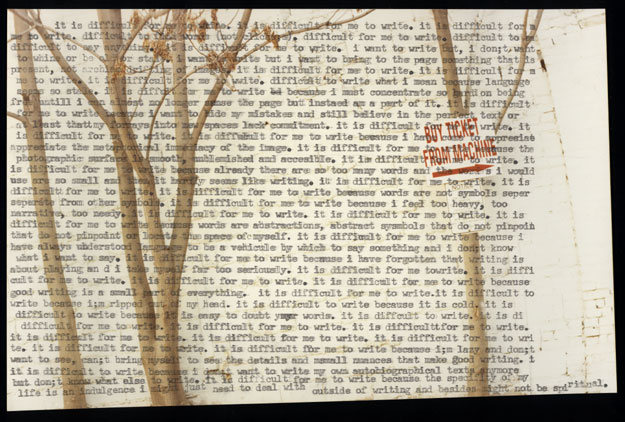 it is difficult for me to write. it is difficult for
me to write. difficult to write. it is difficult for me to write. difficult to
difficult to say anything. it is difficult to write. i want to write but, i don;t want
to whine or be i want to write but i want to bring to the page something that is
present, it is difficult for me to write. it is difficult for m
me to write. it is difficult for me to write. difficult to write what i mean because language
it is difficult for me to write because i must concentrate so hard on being
until i no longer peruse the page but instaed am a part of it. difficult
for me to write because i want to hide my mistakes and still believe in the perfect text or
at least that my forays into spaces lack commitment. it is difficult write. it
it is difficult for me to write. it is difficult for me to write because i have come to appreciate
appreciate the meta of the image. it is difficult for me
photographic surface, smooth, unblemished and accesible. it is difficult to write. it
BUY TICKET
FROM MACHINE
is difficult for me to write because already there are so too many words and the words i would
use are so small and hardly seems like writing. it is difficult for me to write. it is
difficult for me to write. it is difficult for me to write because words are not symbols seper
seperate from other symbols. it is difficult for me to write because i feel too heavy, too
narrative, too needy. it is difficult for me to write. it is
difficult for me to write words are abstractions, abstract sysmbols that do not pinpoin
that do not pinpoint or locate the space of myself. it is difficult for me to write because i
have always understood language to be a vehicule by which to say something and i do not know
what i want to say. it is difficult for me to write because i have forgotten that writing is
about playing and i take myself far too seriously. it is difficult for me towrite. it is diffi
cult for me to write. it is difficult for me to write. it is difficult for me to write because
good writing is a small part of everything. it is difficult for me to write.it is difficult to
write because i;m ripped from my head. it is difficult to write because it is cold. it is
difficult to write because it is easy to doubt your words. it is difficult to write. it is di
difficult for me to write. it is difficult for me to write. it is difficultfor me to write.
it is difficult for me to write. it is difficult for me to write. it is difficult for me to wri
te. it is difficult for me to write. it is difficult for me to write because i;m lazy and don;t
want to see, can;t bring myself to see the details and msmall nuances that make good writing. i
it is difficult to write because i don't want to write my own autobiographical texts anymore
but don;t know what else to write. it is difficult for me to write because the specificity of my
life is an indulgence i might just need to deal with outside of writing and besides might not be spiritual.